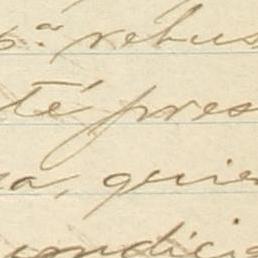 pª rehus
té pres
za, quien
indicia